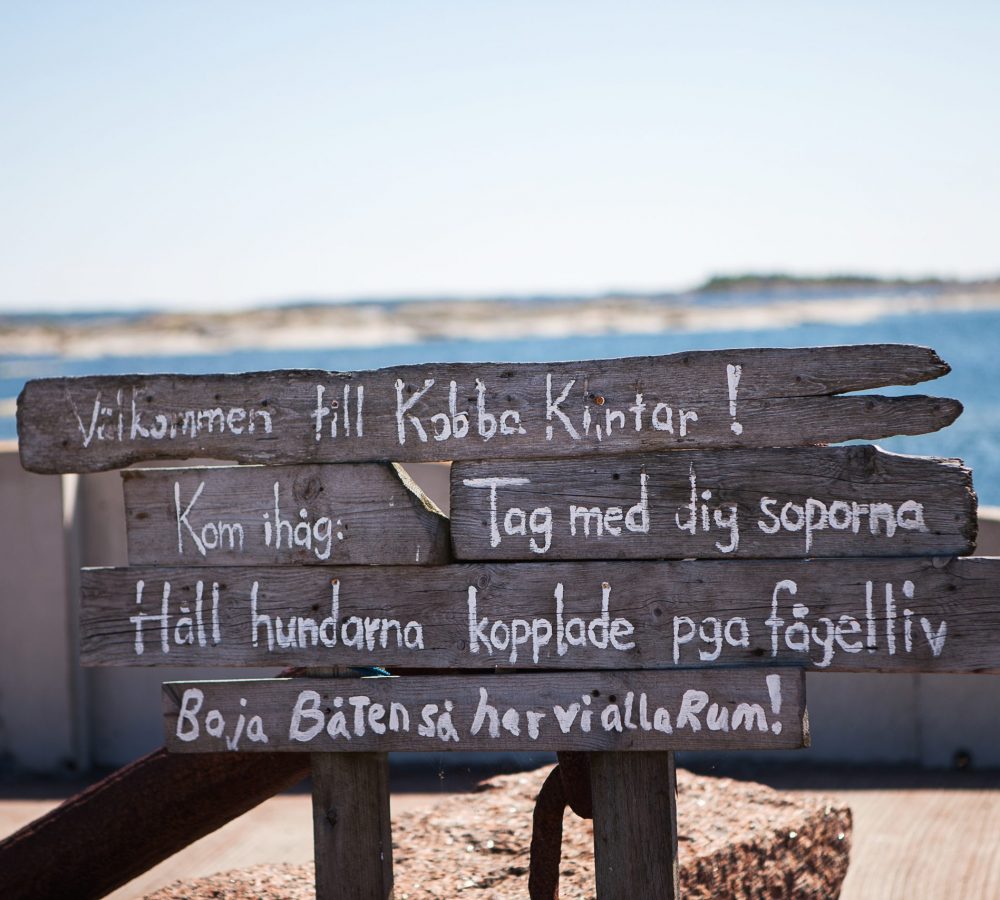 Välkommen till Kobba Klintar !
Kom ihåg: Tag med dig soporna
Håll hundarna kopplade pga fågelliv
Boja Båten så har vi alla Rum!